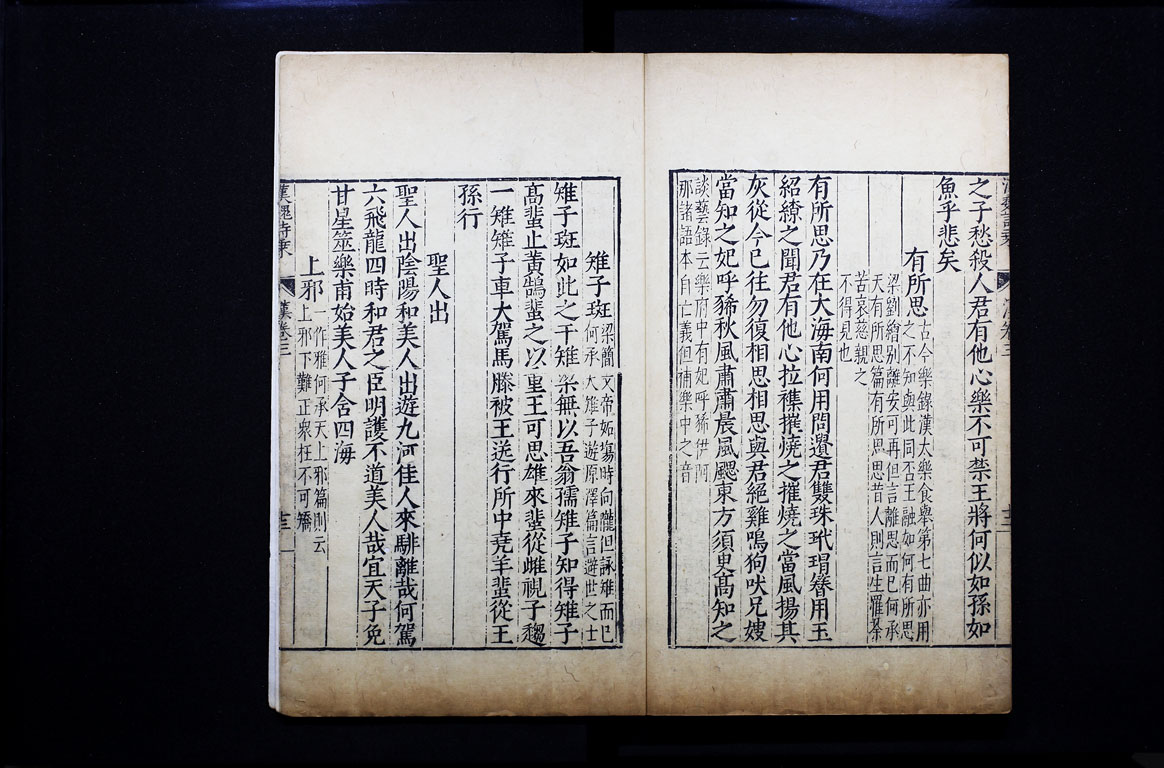 之子愁殺人君有他心樂不可禁王將何似如孫如
魚乎悲矣
有所思古今樂錄漢太樂食舉第七曲亦用
之不知與此同否王融如何有所思
梁劉繪别離安可再但言離思而已何承
天有所思篇有所思思昔人則言生罹荼
苦哀慈親之
不得見也
有所思乃在大海南何用問遺君雙珠玳瑁簪用玉
紹繚之聞君有他心拉襍摧燒之摧燒之當風揚其
灰從今已往勿復相思相思與君絕雞鳴狗吠兄嫂
當知之妃呼豨秋風肅肅晨風颸東方須臾髙知之
談藝錄云樂府中有妃呼豨伊阿
那諸語本自亡義但補樂中之音
雉子斑梁簡文帝妬塲時向隴但詠雉而已
何承天雉子遊原澤篇言避世之士
雉子斑如此之干雉梁無以吾翁孺雉子知得雉子
髙蜚止黃鵠蜚之以重王可思雄來蜚從雌視子趨
一雉雉子車大駕馬滕被王送行所中堯羊蜚從王
孫行
聖人出
聖人出陰陽和美人出遊九河佳人來騑離哉何駕
六飛龍四時和君之臣明護不道美人哉宜天子免
甘星筮樂甫始美人子含四海
上邪一作雅何承天上邪篇則云
上邪下難正衆枉不可矯
漢魏詩乗
漢卷三